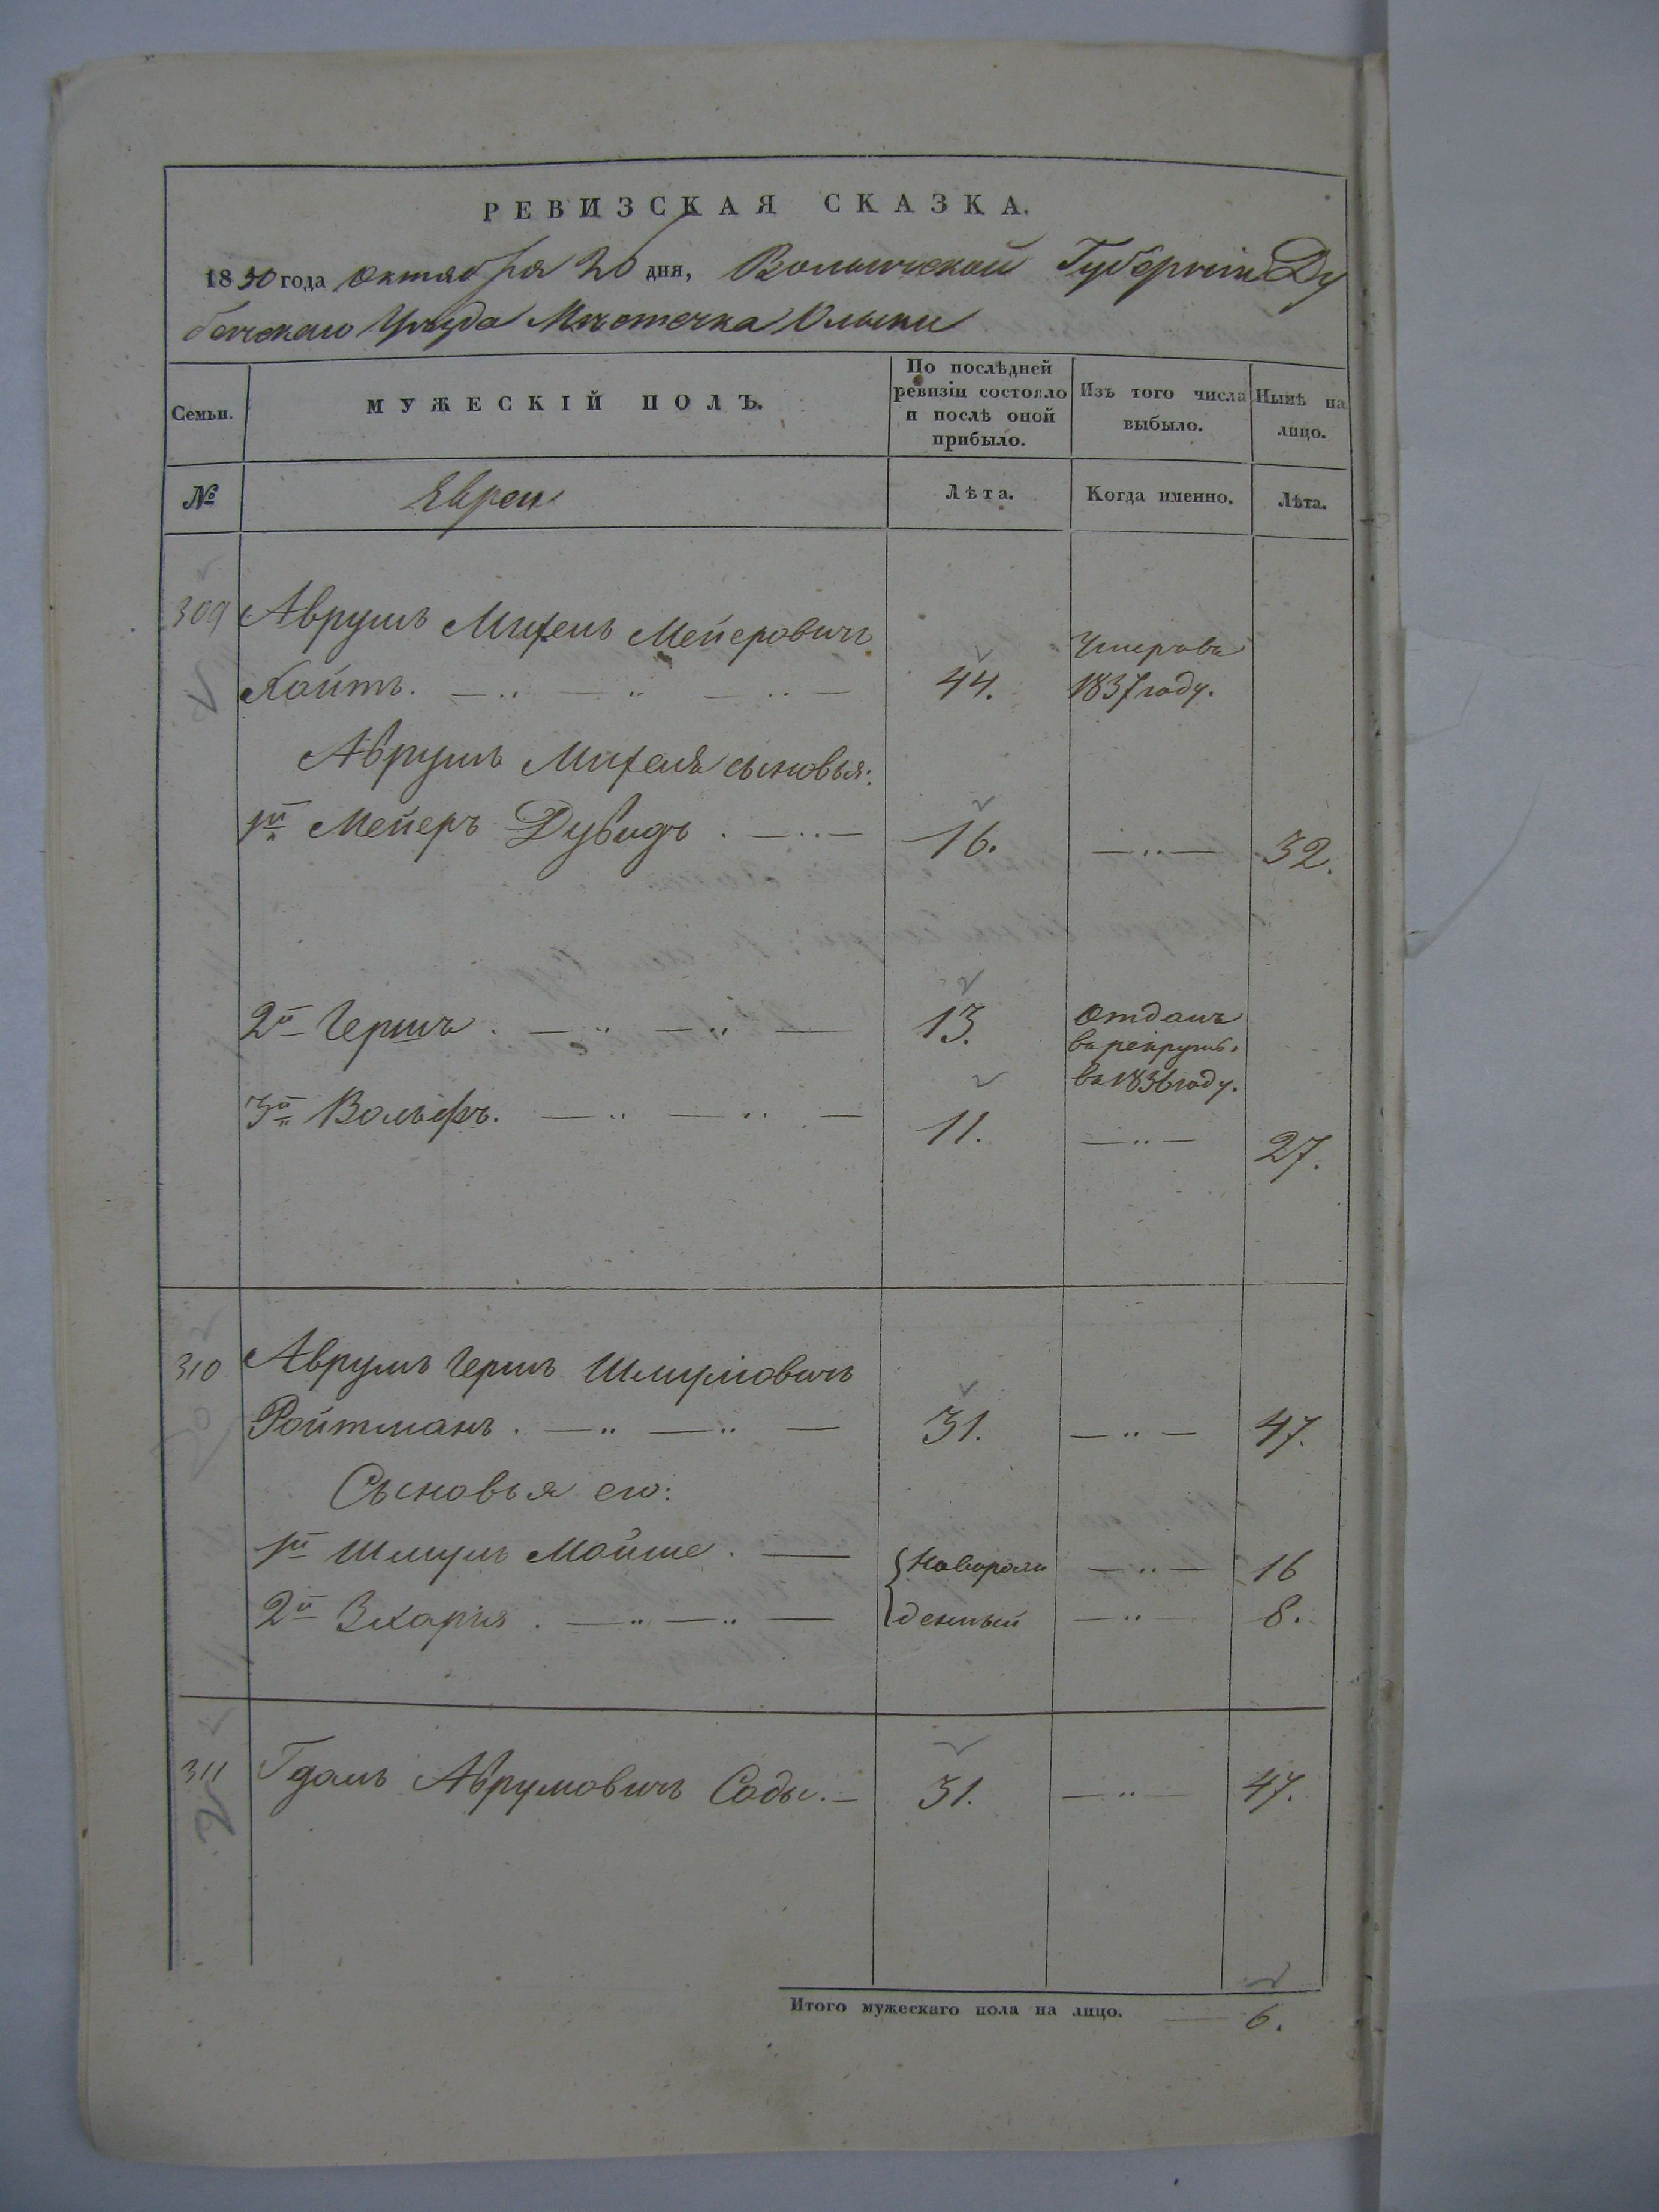 РЕВИЗСКАЯ СКАЗКА.
1850 года октября 20 дня, Волынской Губерніи Ду
бенскаго Уѣзда Мѣстечка Олыки
Семьи.
МУЖЕСКІЙ ПОЛЪ.
По послѣдней ревизіи состояло и послѣ оной прибыло.
Изъ того числа выбыло.
Нынѣ на лицо.
№
Евреи
Лѣта.
Когда именно.
Лѣта.
309 Аврумъ Михель Мейеровичъ Умеръ въ
44. 1837 году.
Аврумъ Михеля сыновья:
1й Мейеръ Дувидъ . — 16. — 32.
2й Гершъ . — 13. отданъ
въ рекруты.
въ 1836 году.
3й Вольфъ. — 11. — 27.
310 Аврумъ Гершъ Шмулiовичъ
Ройтманъ . — 31. — 47.
Сыновья его:
1й Шмуль Мойше . — Новорож — 16
2й Зхарія . — денный — 8.
311 Гдаль Аврумовичъ Соды. — 31. — 47.
Итого мужескаго пола на лицо. — 6.